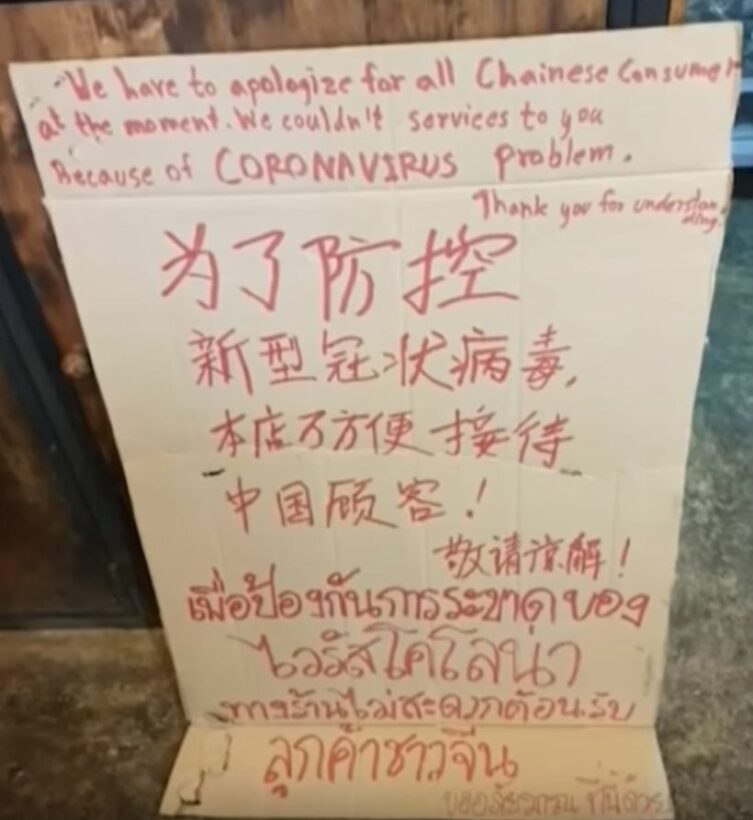 We have to apologize for all Chainese Consumer
at the moment. We couldn't services to you
Because of CORONAVIRUS problem.
Thank you for understan
ding.
为了防控
新型冠状病毒,
本店万方便接待
中国顾客!
敬请谅解!
เพื่อป้องกันการระบาดของ
ไวรัสโคโลนา
ทางร้านไม่สะดวกต้อนรับ
ลูกค้าชาวจีน